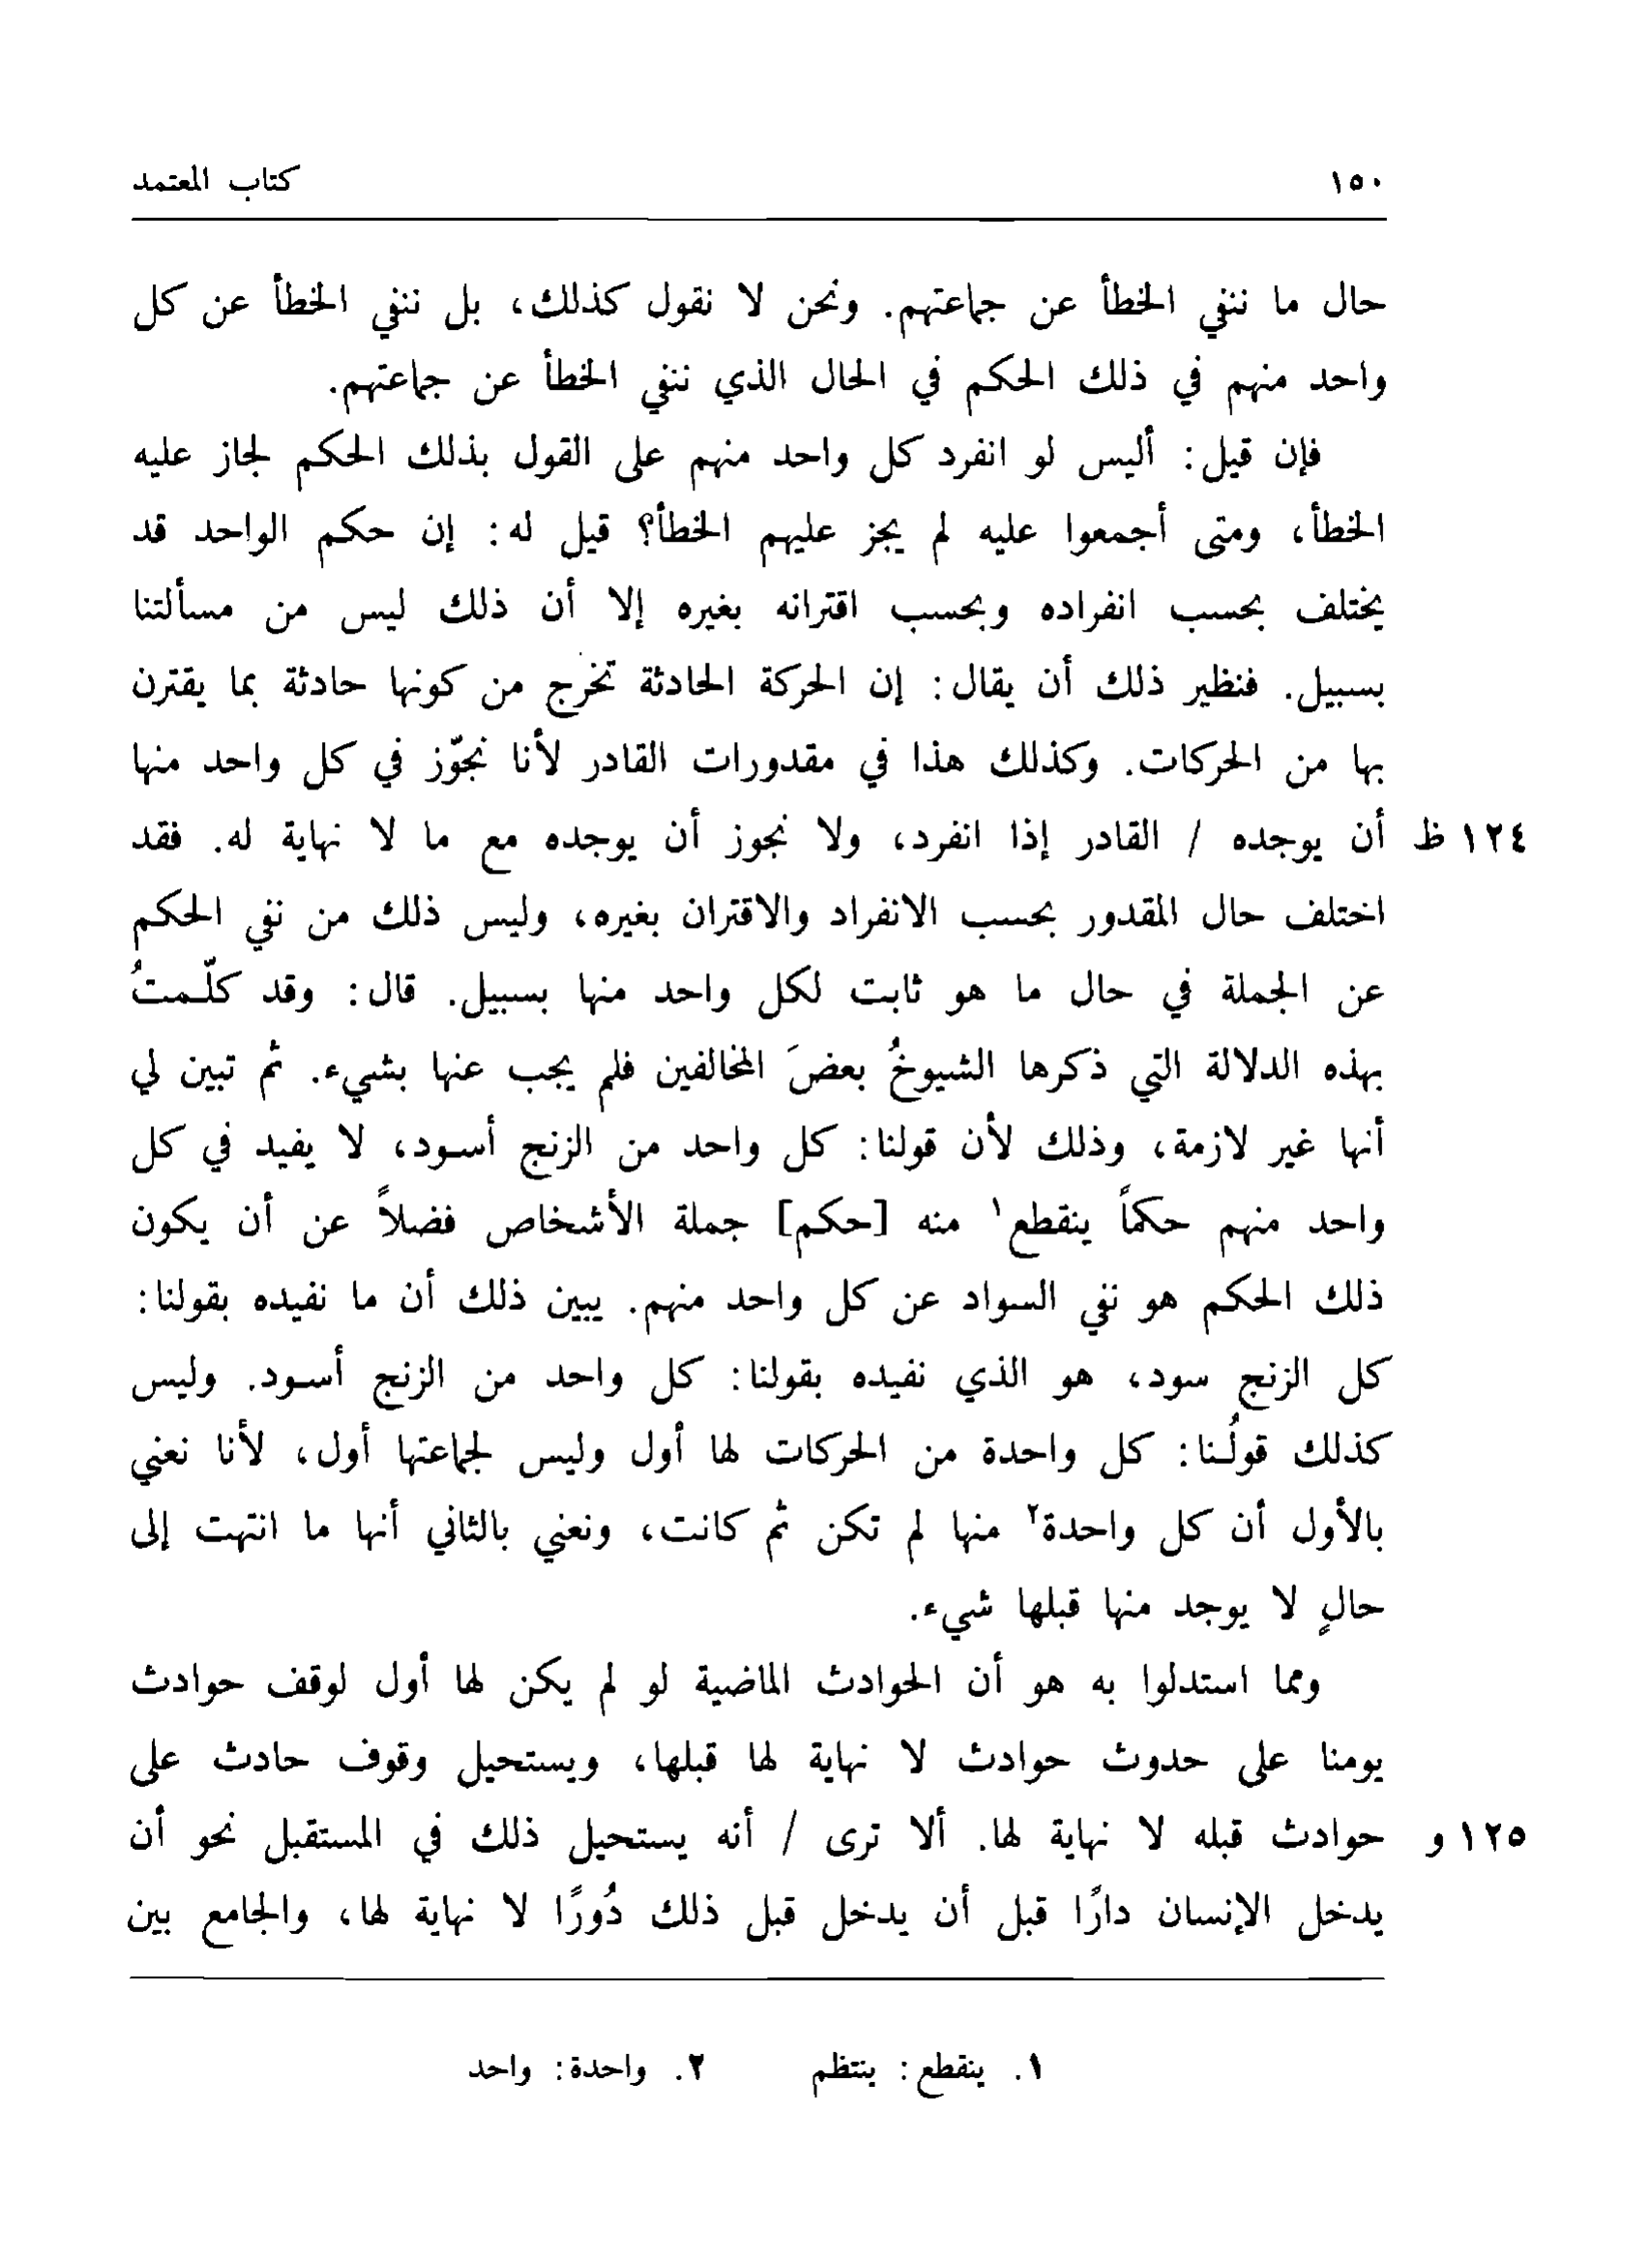 ١٥٠ كتاب المعتمد
حال ما ننفي الخطأ عن جماعتهم. ونحن لا نقول كذلك، بل ننفي الخطأ عن كل
واحد منهم في ذلك الحكم في الحال الذي ننفي الخطأ عن جماعتهم.
فإن قيل: أليس لو انفرد كل واحد منهم على القول بذلك الحكم لجاز عليه
الخطأ، ومتى أجمعوا عليه لم يجز عليهم الخطأ؟ قيل له: إن حكم الواحد قد
يختلف بحسب انفراده وبحسب اقترانه بغيره إلا أن ذلك ليس من مسألتنا
بسبيل. فنظير ذلك أن يقال: إن الحركة الحادثة تخرج من كونها حادثة بما يقترن
بها من الحركات. وكذلك هذا في مقدورات القادر لأنا نجوّز في كل واحد منها
١٢٤ ظ أن يوجده / القادر إذا انفرد، ولا نجوز أن يوجده مع ما لا نهاية له. فقد
اختلف حال المقدور بحسب الانفراد والاقتران بغيره، وليس ذلك من نفي الحكم
عن الجملة في حال ما هو ثابت لكل واحد منها بسبيل. قال: وقد كلّمتُ
بهذه الدلالة التي ذكرها الشيوخُ بعضَ المخالفين فلم يجب عنها بشيء. ثم تبين لي
أنها غير لازمة، وذلك لأن قولنا: كل واحد من الزنج أسود، لا يفيد في كل
واحد منهم حكماً ينقطع١ منه [حكم] جملة الأشخاص فضلاً عن أن يكون
ذلك الحكم هو نفي السواد عن كل واحد منهم. يبين ذلك أن ما نفيده بقولنا:
كل الزنج سود، هو الذي نفيده بقولنا: كل واحد من الزنج أسود. وليس
كذلك قولُنا: كل واحدة من الحركات لها أول وليس لجماعتها أول، لأنا نعني
بالأول أن كل واحدة٢ منها لم تكن ثم كانت، ونعني بالثاني أنها ما انتهت إلى
حالٍ لا يوجد منها قبلها شيء.
ومما استدلوا به هو أن الحوادث الماضية لو لم يكن لها أول لوقف حوادث
يومنا على حدوث حوادث لا نهاية لها قبلها، ويستحيل وقوف حادث على
١٢٥ و حوادث قبله لا نهاية لها. ألا ترى / أنه يستحيل ذلك في المستقبل نحو أن
يدخل الإنسان دارًا قبل أن يدخل قبل ذلك دُورًا لا نهاية لها، والجامع بين
١. ينقطع: ينتظم ٢. واحدة: واحد